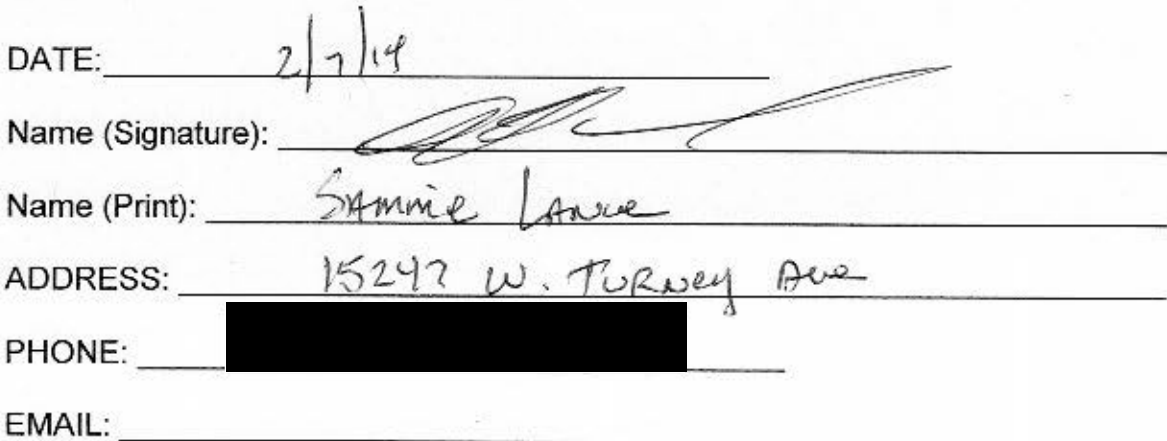 DATE: 2/7/14
Name (Signature):
Name (Print): Sammie
ADDRESS: 15247 W. Turney Ave
PHONE:
EMAIL: